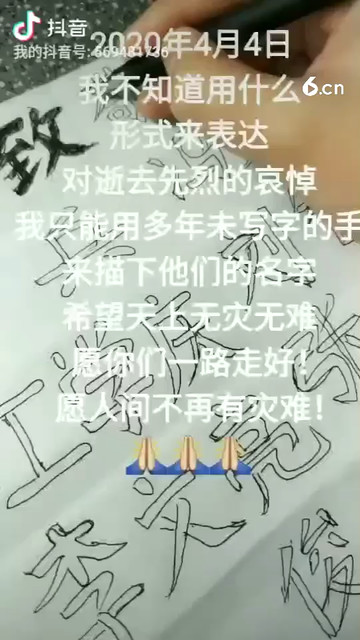 抖音
我的抖音号: 669481736
6.cn
2020年4月4日
我不知道用什么
形式来表达
对逝去先烈的哀悼
我只能用多年未写字的手
来描下他们的名字
希望天上无灾无难
愿你们一路走好!
愿人间不再有灾难!
🙏🙏🙏
致
江学庆
李文亮